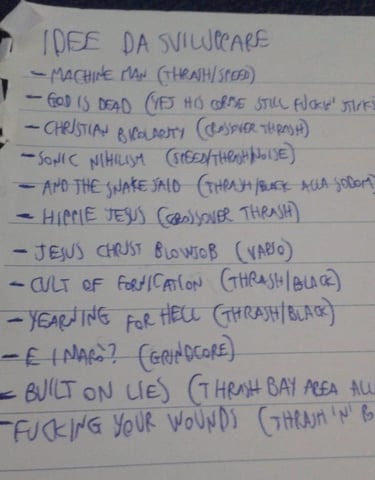 IDEE DA SVILUPPARE
- MACHINE MAN (THRASH/SPEED)
- GOD IS DEAD (YES HIS CORPSE STILL FUCKIN' STINKS
- CHRISTIAN BIPOLARITY (CROSSOVER THRASH)
- SONIC NIHILISM (SPEED/THRASH/NOISE)
- AND THE SNAKE SAID (THRASH/BLACK ALLA SODOM)
- HIPPIE JESUS (CROSSOVER THRASH)
- JESUS CHRIST BLOWJOB (VARIO)
- CULT OF FORNICATION (THRASH/BLACK)
- YEARNING FOR HELL (THRASH/BLACK)
- E I MARÒ? (GRINDCORE)
- BUILT ON LIES (THRASH BAY AREA ALL
- FUCKING YOUR WOUNDS (THRASH 'N'